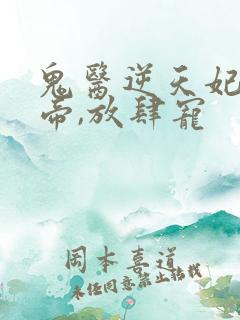 鬼醫逆天妃
帝,放肆寵
岡本喜道
未経同意禁止転載